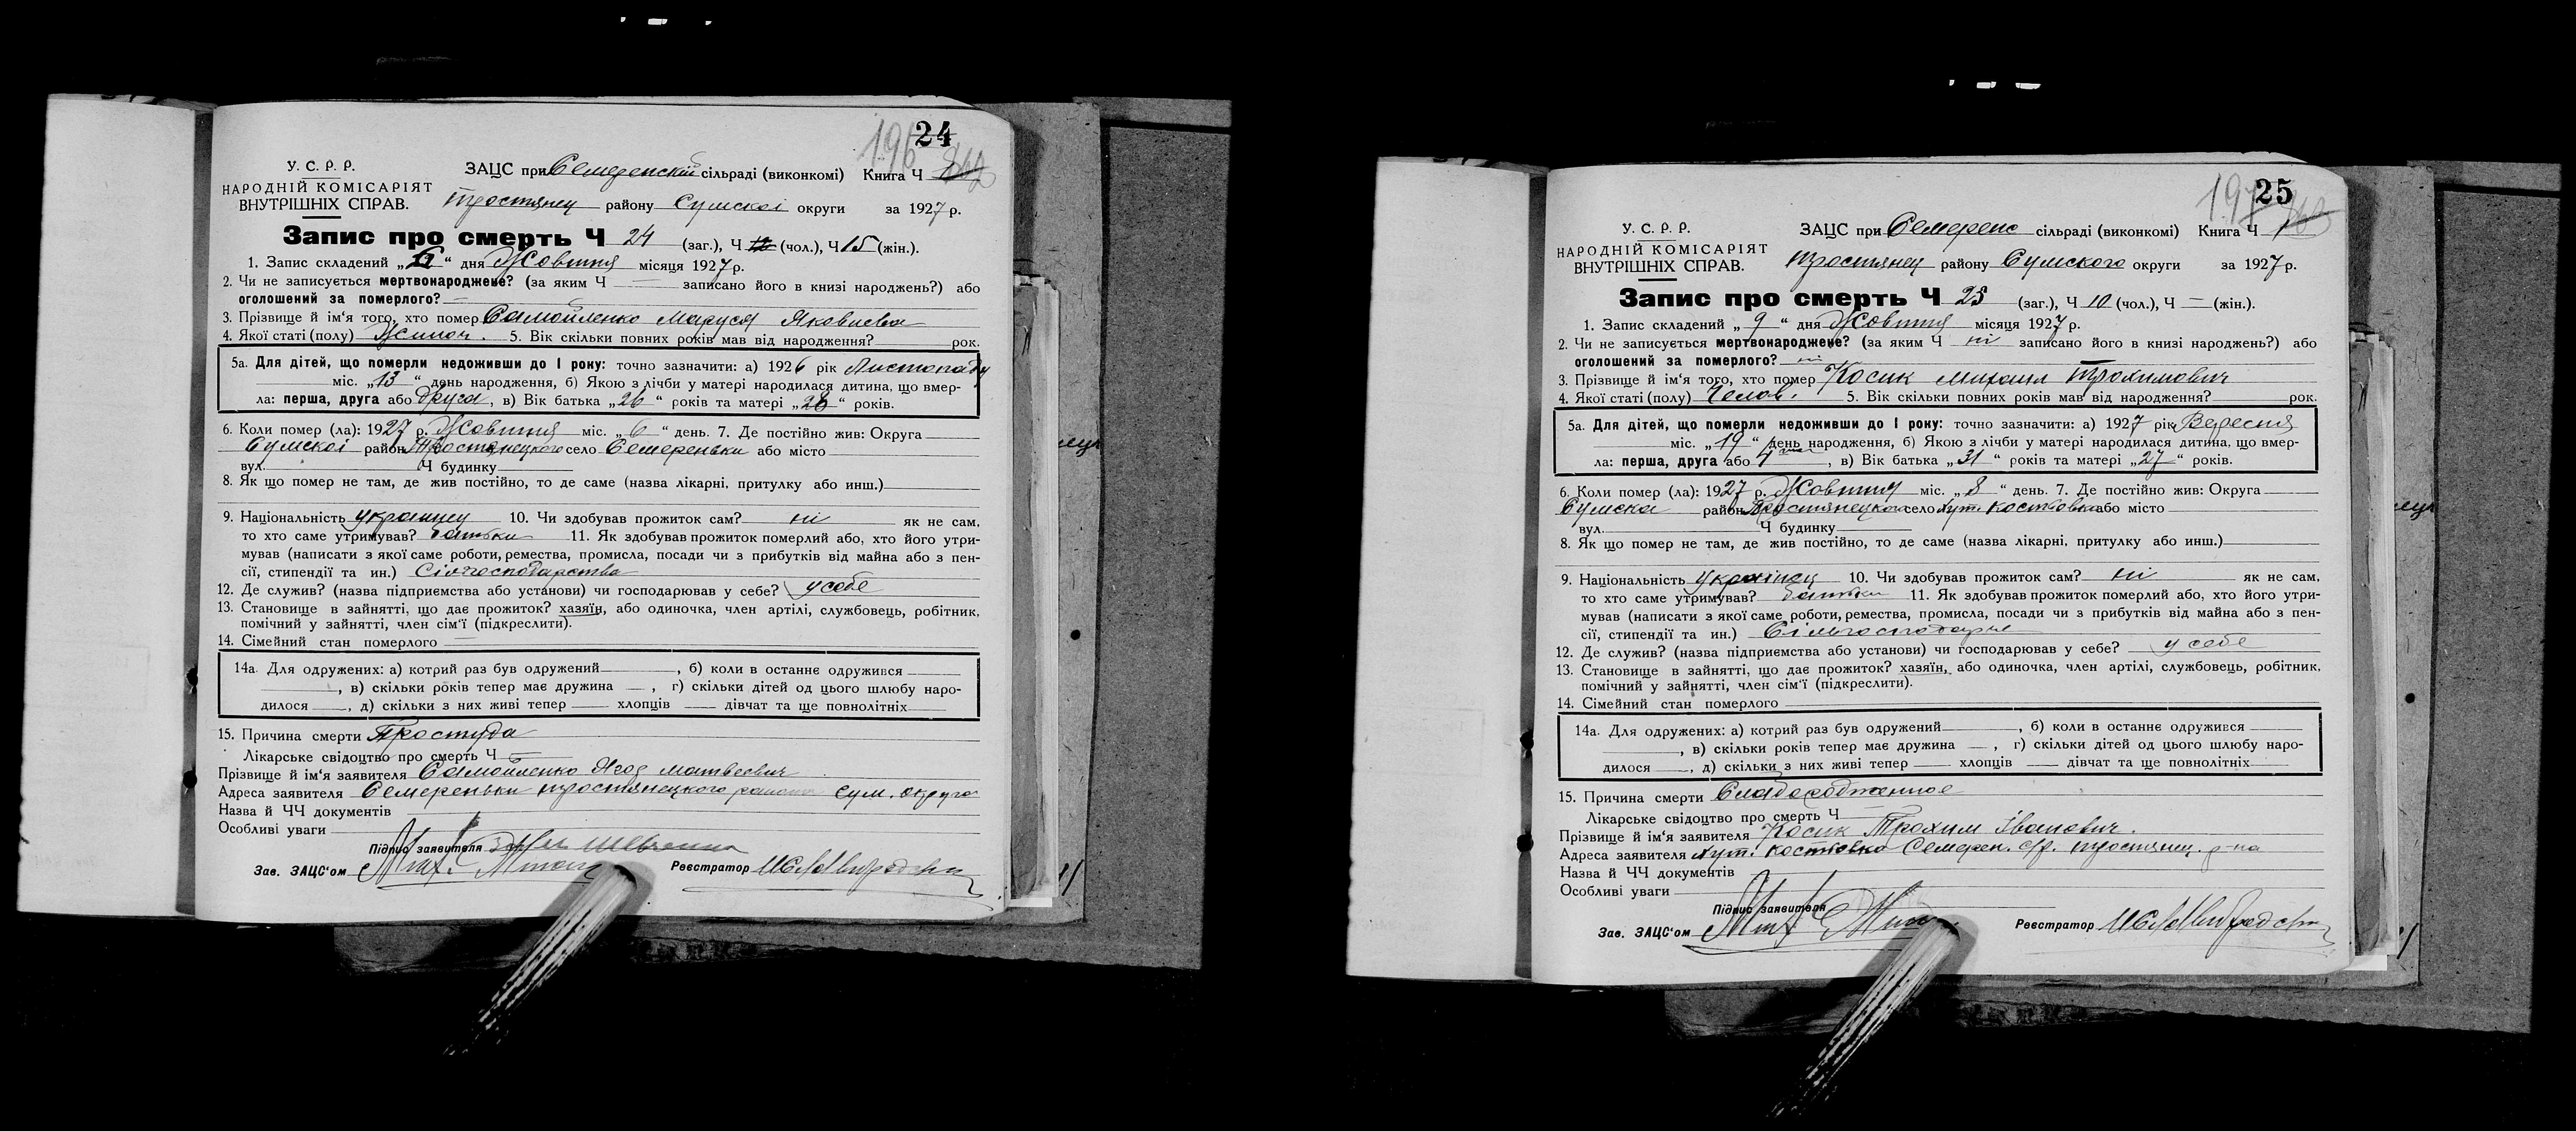 196 24
У. С. Р. Р.
НАРОДНІЙ КОМІСАРІЯТ
ВНУТРІШНІХ СПРАВ.
ЗАЦС при Семеренскій сільраді (виконкомі) Книга Ч
Тростянец району Сумскоі округи за 1927 р.
Запис про смерть Ч 24 (заг.), Ч (чол.), Ч 15 (жін.).
1. Запис складений „6“ дня Жовтня місяця 1927 р.
2. Чи не записується мертвонароджене? (за яким Ч — записано його в книзі народжень?) або
оголошений за померлого? —
3. Прізвище й ім'я того, хто помер Самойленко Маруся Яковлевна
4. Якої статі (полу) Жиноч. 5. Вік скільки повних років мав від народження? рок.
5а. Для дітей, що померли недоживши до 1 року: точно зазначити: а) 1926 рік Листопаду
міс. „13“ день народження, б) Якою з лічби у матері народилася дитина, що вмер-
ла: перша, друга або друга, в) Вік батька „26“ років та матері „28“ років.
6. Коли помер (ла): 1927 р. Жовтня міс. „6“ день. 7. Де постійно жив: Округа
Сумскоі район Тростянецкого село Семереньки або місто
вул. Ч будинку
8. Як що помер не там, де жив постійно, то де саме (назва лікарні, притулку або инш.)
9. Національність украінец 10. Чи здобував прожиток сам? ні як не сам,
то хто саме утримував? батьки 11. Як здобував прожиток померлий або, хто його утри-
мував (написати з якої саме роботи, ремества, промисла, посади чи з прибутків від майна або з пен-
сії, стипендії та ин.) Сільгосподарства
12. Де служив? (назва підприємства або установи) чи господарював у себе? у себе
13. Становище в зайнятті, що дає прожиток? хазяїн, або одиночка, член артілі, службовець, робітник,
помічний у зайнятті, член сім'ї (підкреслити).
14. Сімейний стан померлого —
14а. Для одружених: а) котрий раз був одружений , б) коли в останнє одружився
, в) скільки років тепер має дружина — , г) скільки дітей од цього шлюбу наро-
дилося , д) скільки з них живі тепер хлопців дівчат та ще повнолітніх
15. Причина смерти Простуда
Лікарське свідоцтво про смерть Ч —
Прізвище й ім'я заявителя Самойленко Яков Матвеевич
Адреса заявителя Семереньки Тростянецкого района Сум. округа
Назва й ЧЧ документів
Особливі уваги
Підпис заявителя
Зав. ЗАЦС'ом Реєстратор
197 25
У. С. Р. Р.
НАРОДНІЙ КОМІСАРІЯТ
ВНУТРІШНІХ СПРАВ.
ЗАЦС при Семеренс сільраді (виконкомі) Книга Ч 1
Тростянец району Сумского округи за 1927 р.
Запис про смерть Ч 25 (заг.), Ч 10 (чол.), Ч — (жін.).
1. Запис складений „9“ дня Жовтня місяця 1927 р.
2. Чи не записується мертвонароджене? (за яким Ч ні записано його в книзі народжень?) або
оголошений за померлого? ні
3. Прізвище й ім'я того, хто помер Косик Михаил Трохимович
4. Якої статі (полу) Челов. 5. Вік скільки повних років мав від народження? рок.
5а. Для дітей, що померли недоживши до 1 року: точно зазначити: а) 1927 рік Вересня
міс. „19“ день народження, б) Якою з лічби у матері народилася дитина, що вмер-
ла: перша, друга або 4, в) Вік батька „31“ років та матері „27“ років.
6. Коли помер (ла): 1927 р. Жовтня міс. „8“ день. 7. Де постійно жив: Округа
Сумска район Тростянецкого село хут. Костівка або місто
вул. Ч будинку
8. Як що помер не там, де жив постійно, то де саме (назва лікарні, притулку або инш.)
9. Національність украінец 10. Чи здобував прожиток сам? ні як не сам,
то хто саме утримував? батьки 11. Як здобував прожиток померлий або, хто його утри-
мував (написати з якої саме роботи, ремества, промисла, посади чи з прибутків від майна або з пен-
сії, стипендії та ин.)
12. Де служив? (назва підприємства або установи) чи господарював у себе? у себе
13. Становище в зайнятті, що дає прожиток? хазяїн, або одиночка, член артілі, службовець, робітник,
помічний у зайнятті, член сім'ї (підкреслити).
14. Сімейний стан померлого
14а. Для одружених: а) котрий раз був одружений , б) коли в останнє одружився
, в) скільки років тепер має дружина — , г) скільки дітей од цього шлюбу наро-
дилося , д) скільки з них живі тепер хлопців дівчат та ще повнолітніх
15. Причина смерти
Лікарське свідоцтво про смерть Ч —
Прізвище й ім'я заявителя Косик Трохим Іванович.
Адреса заявителя хут. Костівка Семерен. с/р. Тростянец. р-на
Назва й ЧЧ документів
Особливі уваги
Підпис заявителя
Зав. ЗАЦС'ом Реєстратор